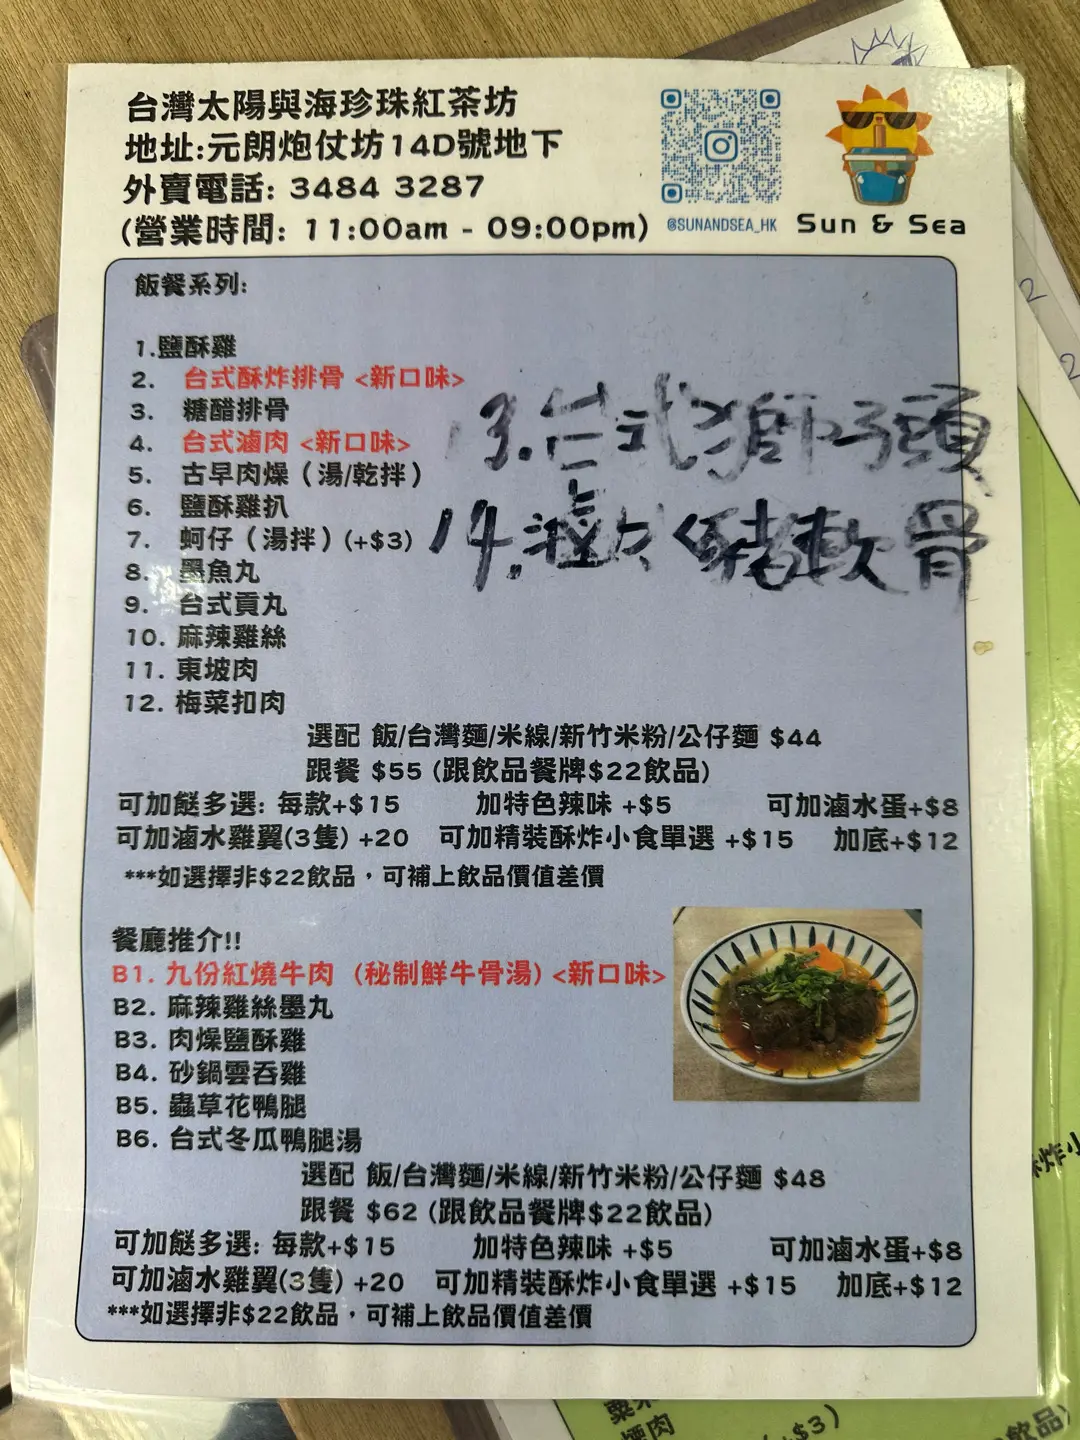 台灣太陽與海珍珠紅茶坊
地址:元朗炮仗坊14D號地下
外賣電話: 3484 3287
(營業時間: 11:00am - 09:00pm)
@SUNANDSEA_HK
Sun & Sea
飯餐系列:
1.鹽酥雞
2. 台式酥炸排骨 <新口味>
3. 糖醋排骨
4. 台式滷肉 <新口味>
5. 古早肉燥（湯/乾拌）
6. 鹽酥雞扒
7. 蚵仔（湯拌）(+$3)
8. 墨魚丸
9. 台式貢丸
10. 麻辣雞絲
11. 東坡肉
12. 梅菜扣肉
13.台式獅子頭
14.滷水豬軟骨
選配 飯/台灣麵/米線/新竹米粉/公仔麵 $44
跟餐 $55 (跟飲品餐牌$22飲品)
可加餸多選: 每款+$15 加特色辣味 +$5 可加滷水蛋+$8
可加滷水雞翼(3隻) +20 可加精裝酥炸小食單選 +$15 加底+$12
***如選擇非$22飲品，可補上飲品價值差價
餐廳推介!!
B1. 九份紅燒牛肉 (秘制鮮牛骨湯) <新口味>
B2. 麻辣雞絲墨丸
B3. 肉燥鹽酥雞
B4. 砂鍋雲吞雞
B5. 蟲草花鴨腿
B6. 台式冬瓜鴨腿湯
選配 飯/台灣麵/米線/新竹米粉/公仔麵 $48
跟餐 $62 (跟飲品餐牌$22飲品)
可加餸多選: 每款+$15 加特色辣味 +$5 可加滷水蛋+$8
可加滷水雞翼(3隻) +20 可加精裝酥炸小食單選 +$15 加底+$12
***如選擇非$22飲品，可補上飲品價值差價
2
2
炸小
肉
+$3)
飲品)